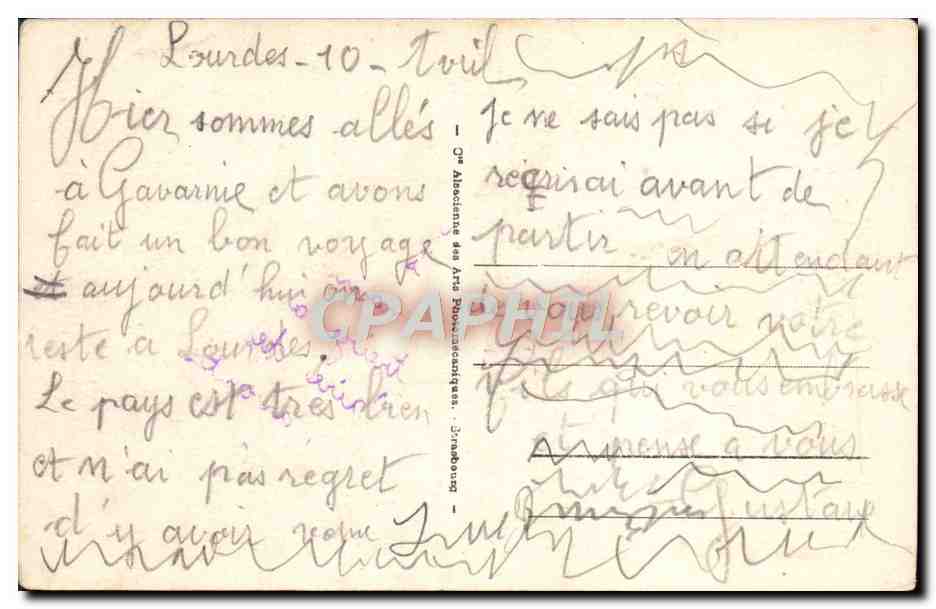 Lourdes - 10 - Avril
Hier sommes allés
à Gavarnie et avons
fait un bon voyage
et aujourd'hui on
reste a Lourdes.
Le pays est très bien
et n'ai pas regret
d'y avoir venu
Cie Alsacienne des Arts Photomécaniques. - Strasbourg -
CPAPHIL
je ne sais pas si je
avant de
partir en attendant
de vous revoir votre
fils qui vous embrasse
et pense a vous
Gustave